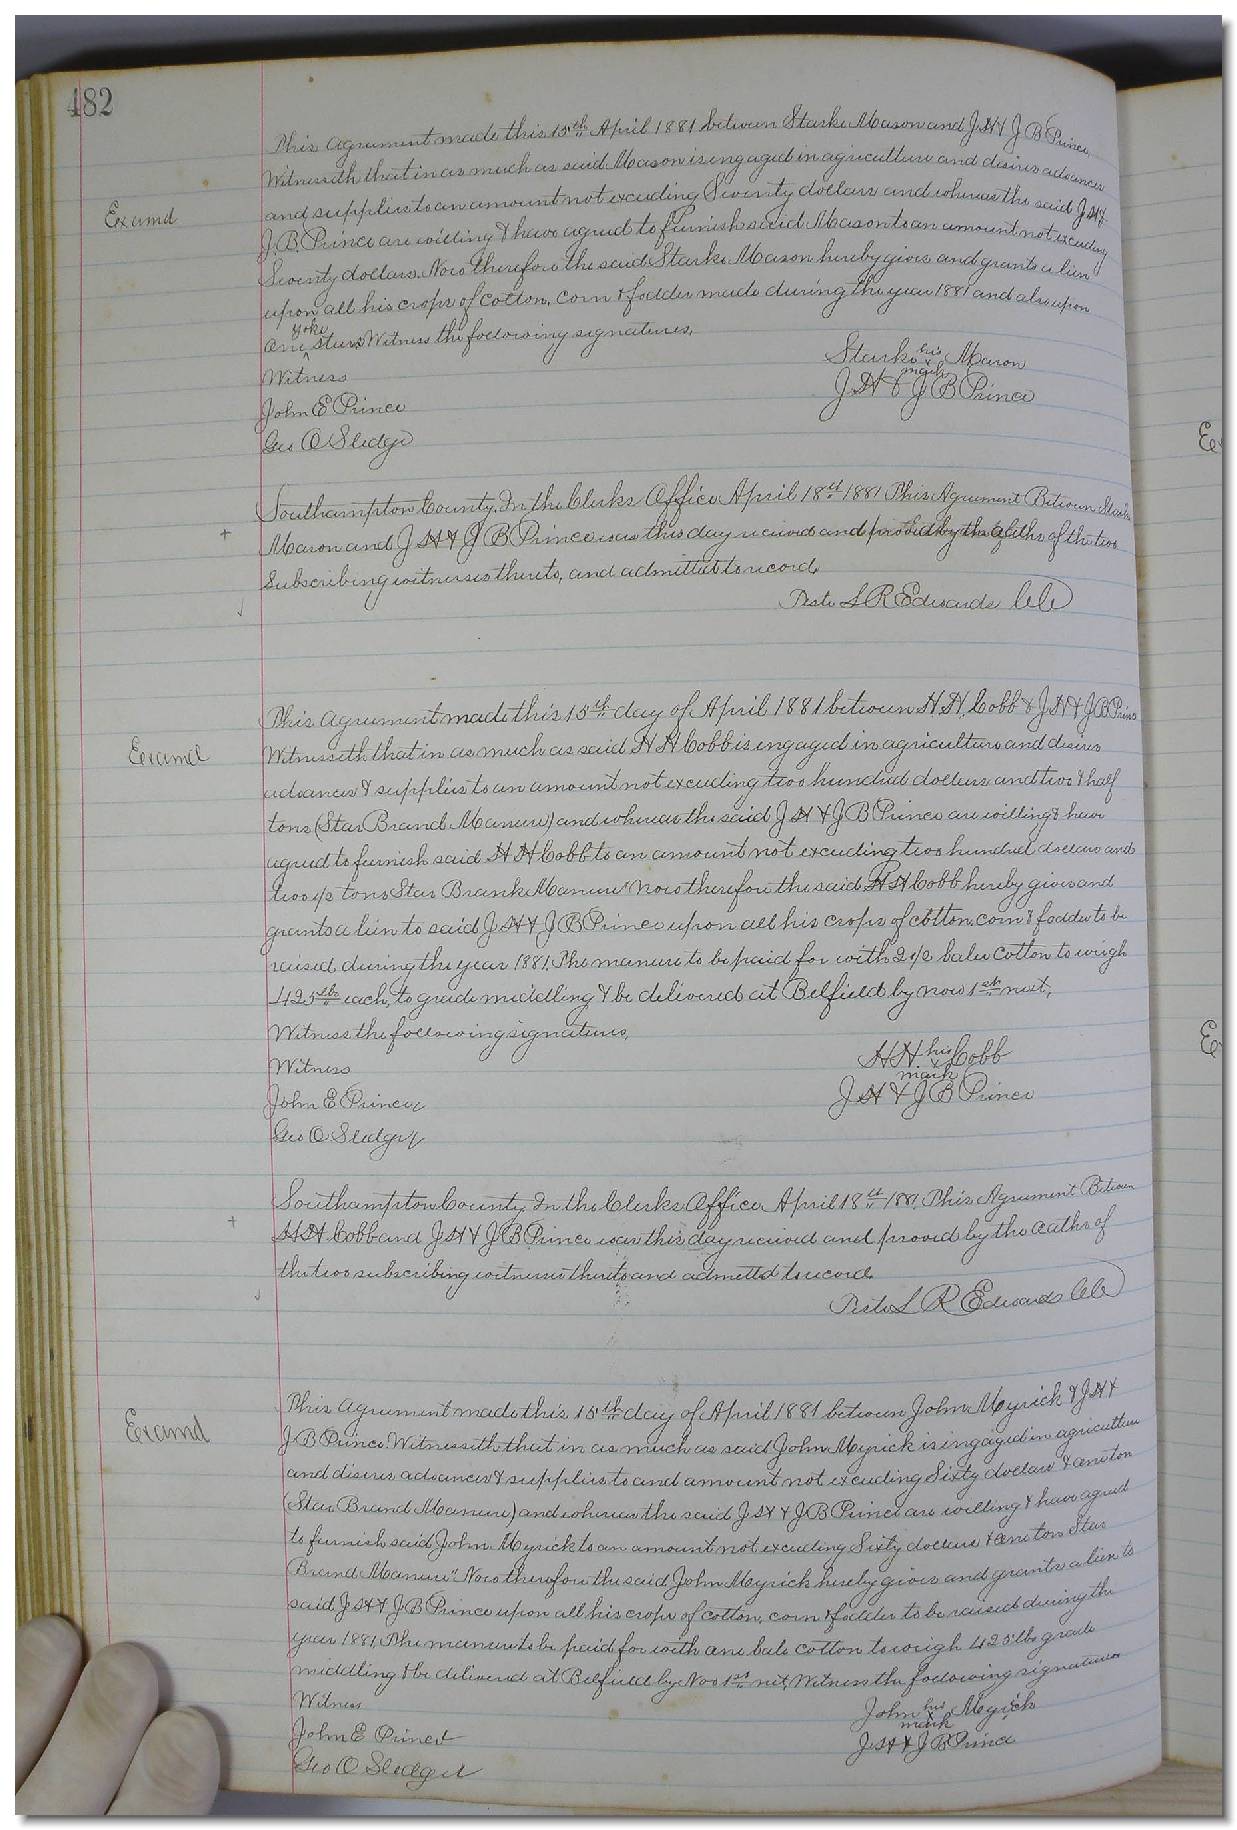 482
This agreement made this 15th April 1881 between Starke Mason and J H & J B Prince
Witnesseth that in as much as said Mason is engaged in agriculture and desires advances
Examd
and supplies to an amount not exceeding Seventy dollars and whereas the said J H &
J. B. Prince are willing & have agreed to furnish said Mason to an amount not exceeding
Seventy dollars. Now therefore the said Starke Mason hereby gives and grants a lien
upon all his crops of cotton, corn & fodder made during the year 1881 and also upon
yoke
one steers Witness the following signatures.
Witness
Starke his Mason
mark
John E Prince
J H & J B Prince
Geo O Sledge
Southampton County. In the Clerks Office April 18th 1881 This Agreement Between Starke
+ Mason and J H & J B Prince was this day received and proved by the oaths of the two
Subscribing witnesses thereto, and admitted to record
Teste L R Edwards CC
This agreement made this 15th day of April 1881 between H H. Cobb & J H & J B Prince
Examd
Witnesseth that in as much as said H H Cobb is engaged in agriculture and desires
advances & supplies to an amount not exceeding two hundred dollars and two & half
tons (Star Brand Manure) and whereas the said J H & J B Prince are willing & have
agreed to furnish said H H Cobb to an amount not exceeding two hundred dollars and
two 1/2 tons Star Brank Manure" Now therefore the said H H Cobb hereby gives and
grants a lien to said J H & J B Prince upon all his crops of cotton, corn & fodder to be
raised during the year 1881. The manure to be paid for with 2 1/2 bales Cotton to weigh
425 lbs each, to grade middling & be delivered at Belfield by Nov 1st next,
Witness the following signatures,
Witness
H H his Cobb
mark
John E Prince
J H & J B Prince
Geo O Sledge
Southampton County. In the Clerks Office April 18th 1881. This Agreement Between
+ H H Cobb and J H & J B Prince was this day received and proved by the oaths of
the two subscribing witnesses thereto and admitted to record.
Teste L R Edwards CC
This agreement made this 15th day of April 1881 between John Myrick & J H &
Examd
J B Prince. Witnesseth that in as much as said John Myrick is engaged in agriculture
and desires advances & supplies to and amount not exceeding Sixty dollars & one ton
(Star Brand Manure) and whereas the said J H & J B Prince are willing & have agreed
to furnish said John Myrick to an amount not exceeding Sixty dollars & one ton Star
Brand Manure". Now therefore the said John Myrick hereby gives and grants a lien to
said J H & J B Prince upon all his crops of cotton, corn & fodder to be raised during the
year 1881. The manure to be paid for with one bale cotton to weigh 425 lbs grade
middling & be delivered at Belfield by Nov 1st next, Witness the following signatures
Witness
John his Myrick
mark
John E Prince
J H & J B Prince
Geo O Sledge